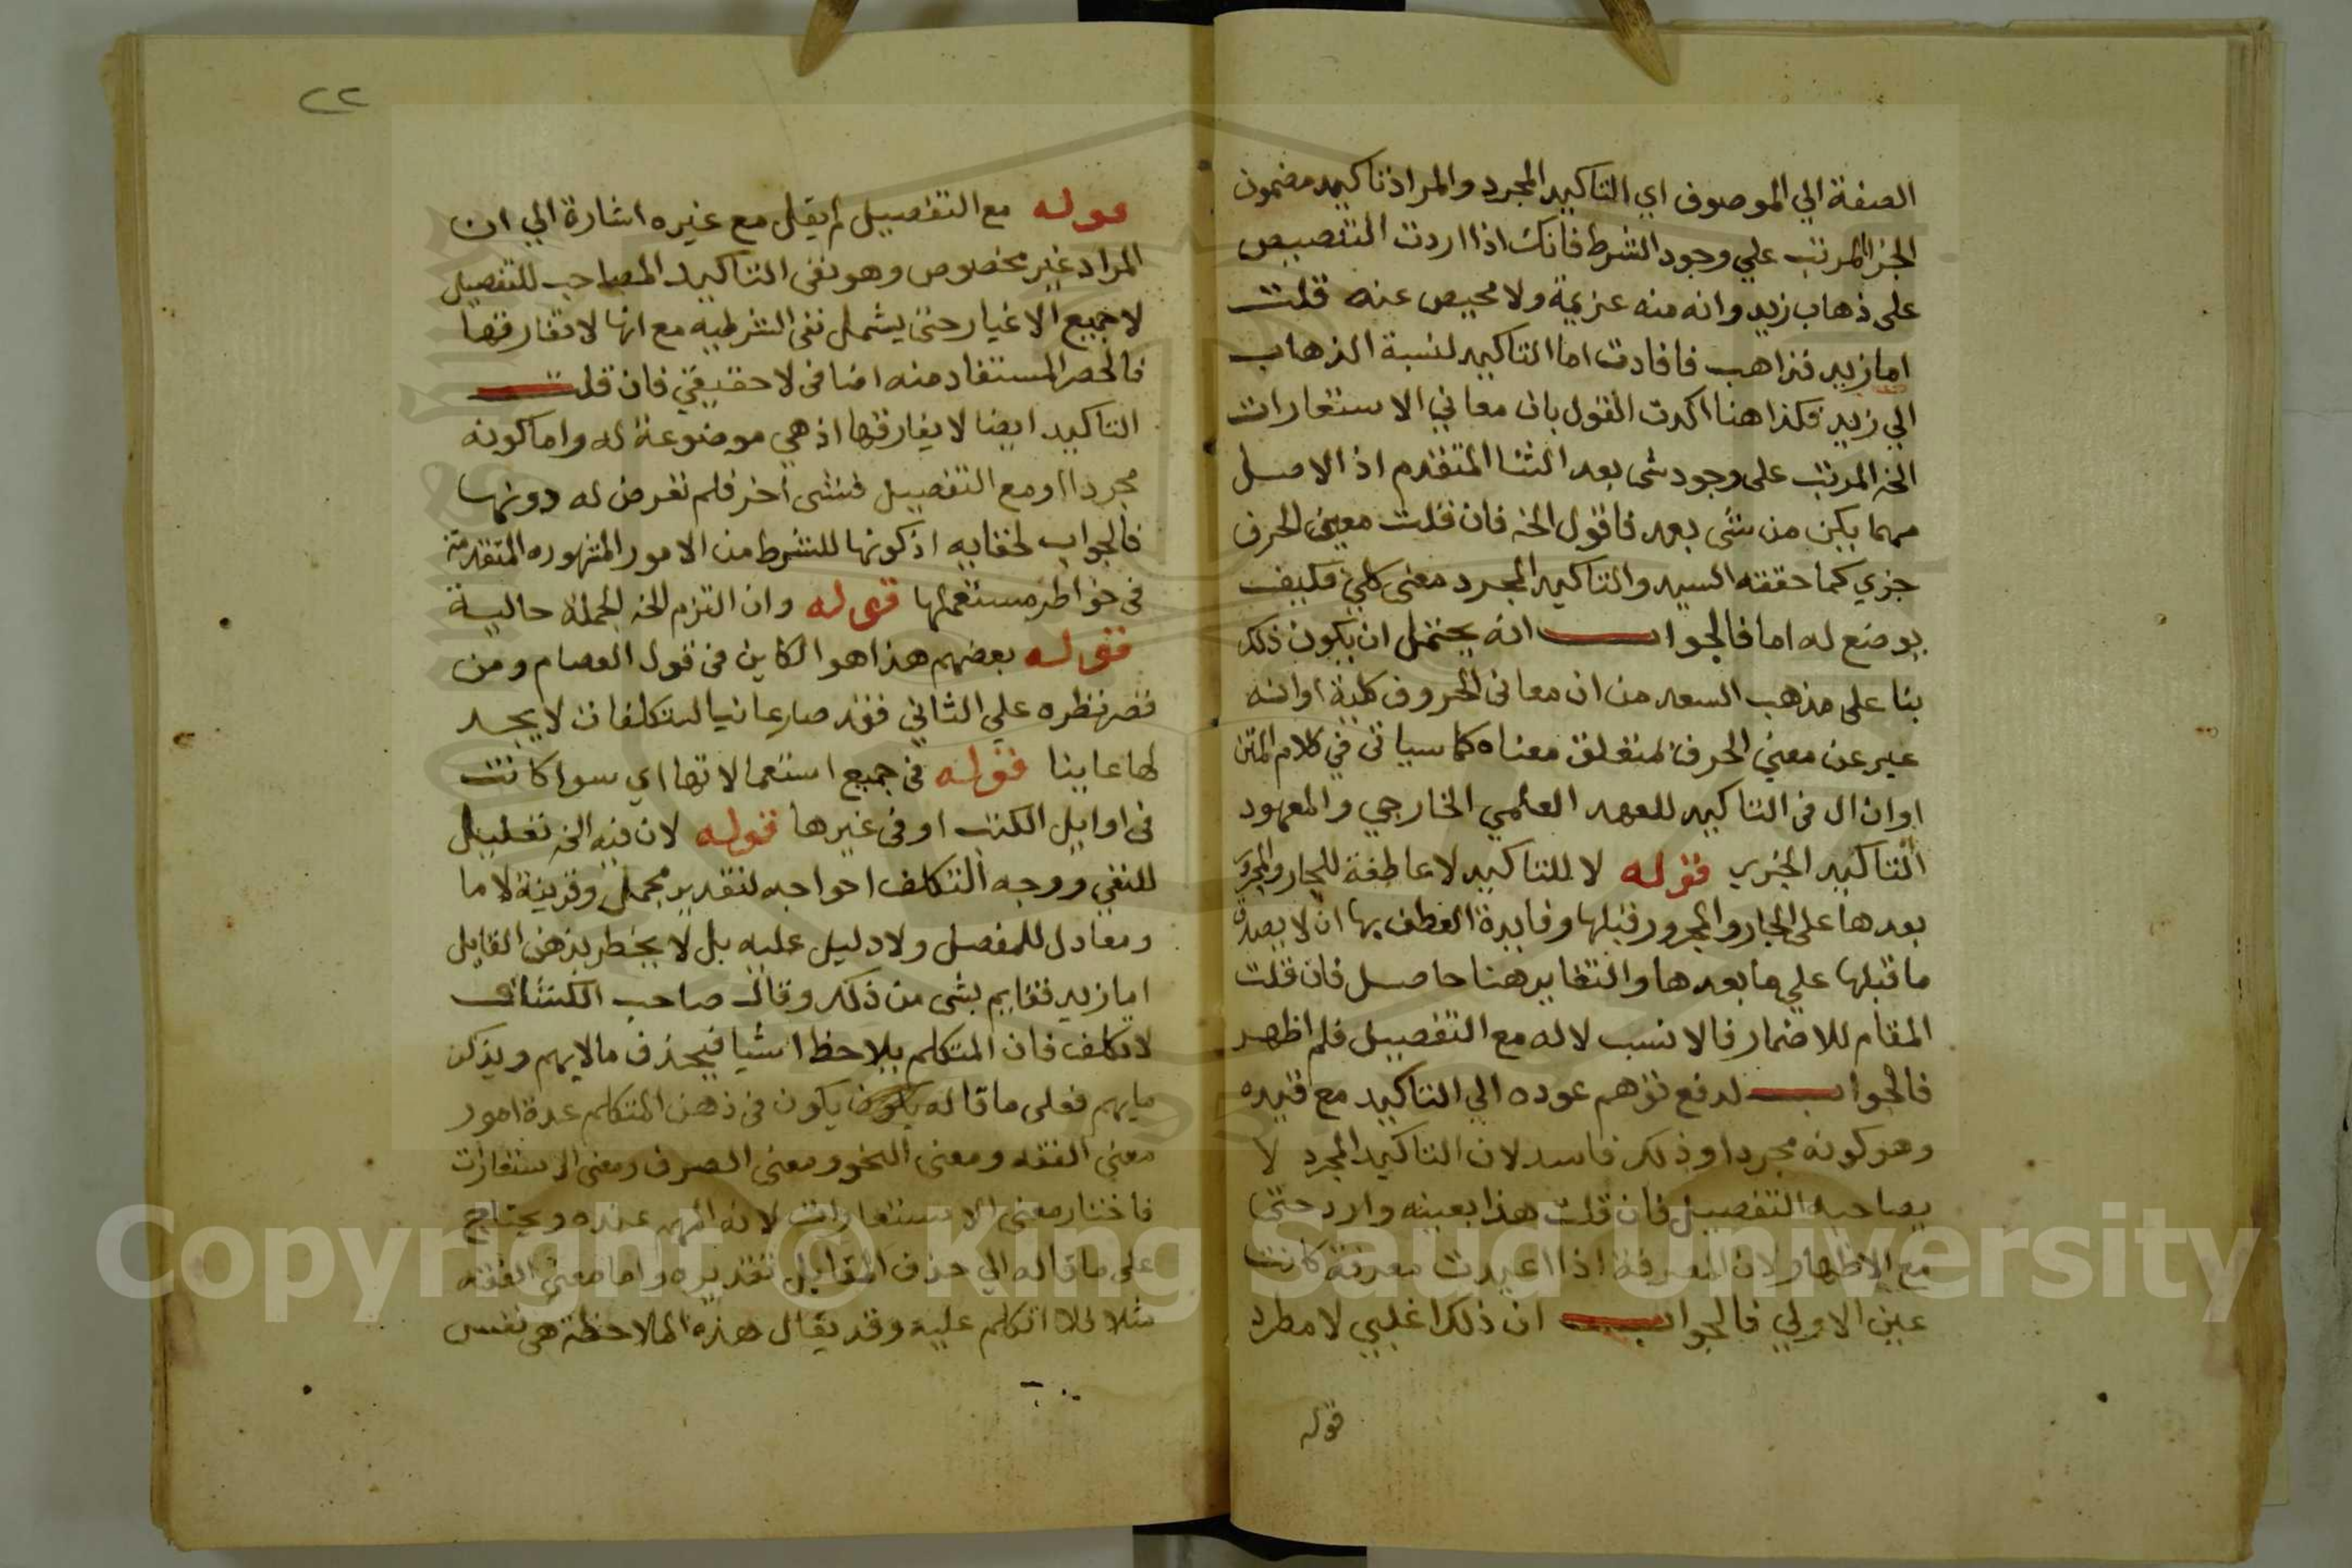 الصفة الي الموصوف اي التاكيد المجرد والمراد تاكيد مضمون
الجزا المرتب علي وجود الشرط فانك اذا اردت التنصيص
على ذهاب زيد وانه منه عزيمة ولا محيص عنه قلت
اما زيد فذاهب فافادت اما التاكيد لنسبة الذهاب
الي زيد فكذا هنا اكدت القول بان معاني الاستعارات
الخ المرتب على وجود شى بعد الثنا المتقدم اذ الاصل
مهما يكن من شى بعد فاقول الخ فان قلت معنى الحرف
جزي كما حققه السيد والتاكيد المجرد معنى كلي فكيف
يوضع له اما فالجواب انه يحتمل ان يكون ذلك
بنا على مذهب السعد من ان معانى الحروف كلية او انه
عبر عن معني الحرف لمتعلق معناه كما سياتى في كلام المتن
او ان ال فى التاكيد للعهد العلمي الخارجي والمعهود
التاكيد الجزي قوله لا للتاكيد لا عاطفة للجار والمجرور
بعدها على الجار والمجرور قبلها وفايدة العطف بها ان لا يصدق
ما قبلها علي ما بعدها والتغاير هنا حاصل فان قلت
المقام للاضمار فالانسب لا له مع التفصيل فلم اظهر
فالجواب لدفع توهم عوده الي التاكيد مع قيده
وهو كونه مجردا وذلك فاسد لان التاكيد المجرد لا
يصاحبه التفصيل فان قلت هذا بعينه وارد حتى
مع الاظهار لان المعرفة اذا اعيدت معرفة كانت
عين الاولي فالجواب ان ذلك اغلبي لا مطرد
قوله
٢٢
قوله مع التفصيل لم يقل مع غيره اشارة الي ان
المراد غير مخصوص وهو نفى التاكيد المصاحب للتفصيل
لا جميع الاغيار حتى يشمل نفى الشرطيه مع انها لا تفارقها
فالحصر المستفاد منه اضافى لا حقيقي فان قلت
التاكيد ايضا لا يفارقها اذ هي موضوعة له واما كونه
مجردا او مع التفصيل فشى اخر فلم تعرض له دونها
فالجواب لخفايه اذ كونها للشرط من الامور المشهوره المتقدمة
فى خواطر مستعملها قوله وان التزم الخ الجملة حالية
قوله بعضهم هذا هو الكاين فى قول العصام ومن
قصر نظره علي الثاني فقد صار عانيا لتكلفات لا يجد
لها عاينا قوله فى جميع استعمالاتها اي سوا كانت
فى اوايل الكتب او فى غيرها قوله لان فيه الخ تعليل
للنفي ووجه التكلف احواجه لتقدير مجمل وقرينة لاما
ومعادل للمفصل ولا دليل عليه بل لا يخطر بذهن القايل
اما زيد فقايم بشى من ذلك وقال صاحب الكشاف
لا تكلف فان المتكلم يلاحظ اشيا فيحذف ما لا يهم ويذكر
ما يهم فعلى ما قاله يكون فى ذهن المتكلم عدة امور
معني الفقه ومعنى النحو ومعنى الصرف ومعنى الاستعارات
فاختار معنى الاستعارات لانه المهم عنده ويحتاج
على ما قاله الي حذف المقابل تقديره واما معنى الفقه
مثلا فلا اتكلم عليه وقد يقال هذه الملاحظة هى نفس
Copyright © King Saud University